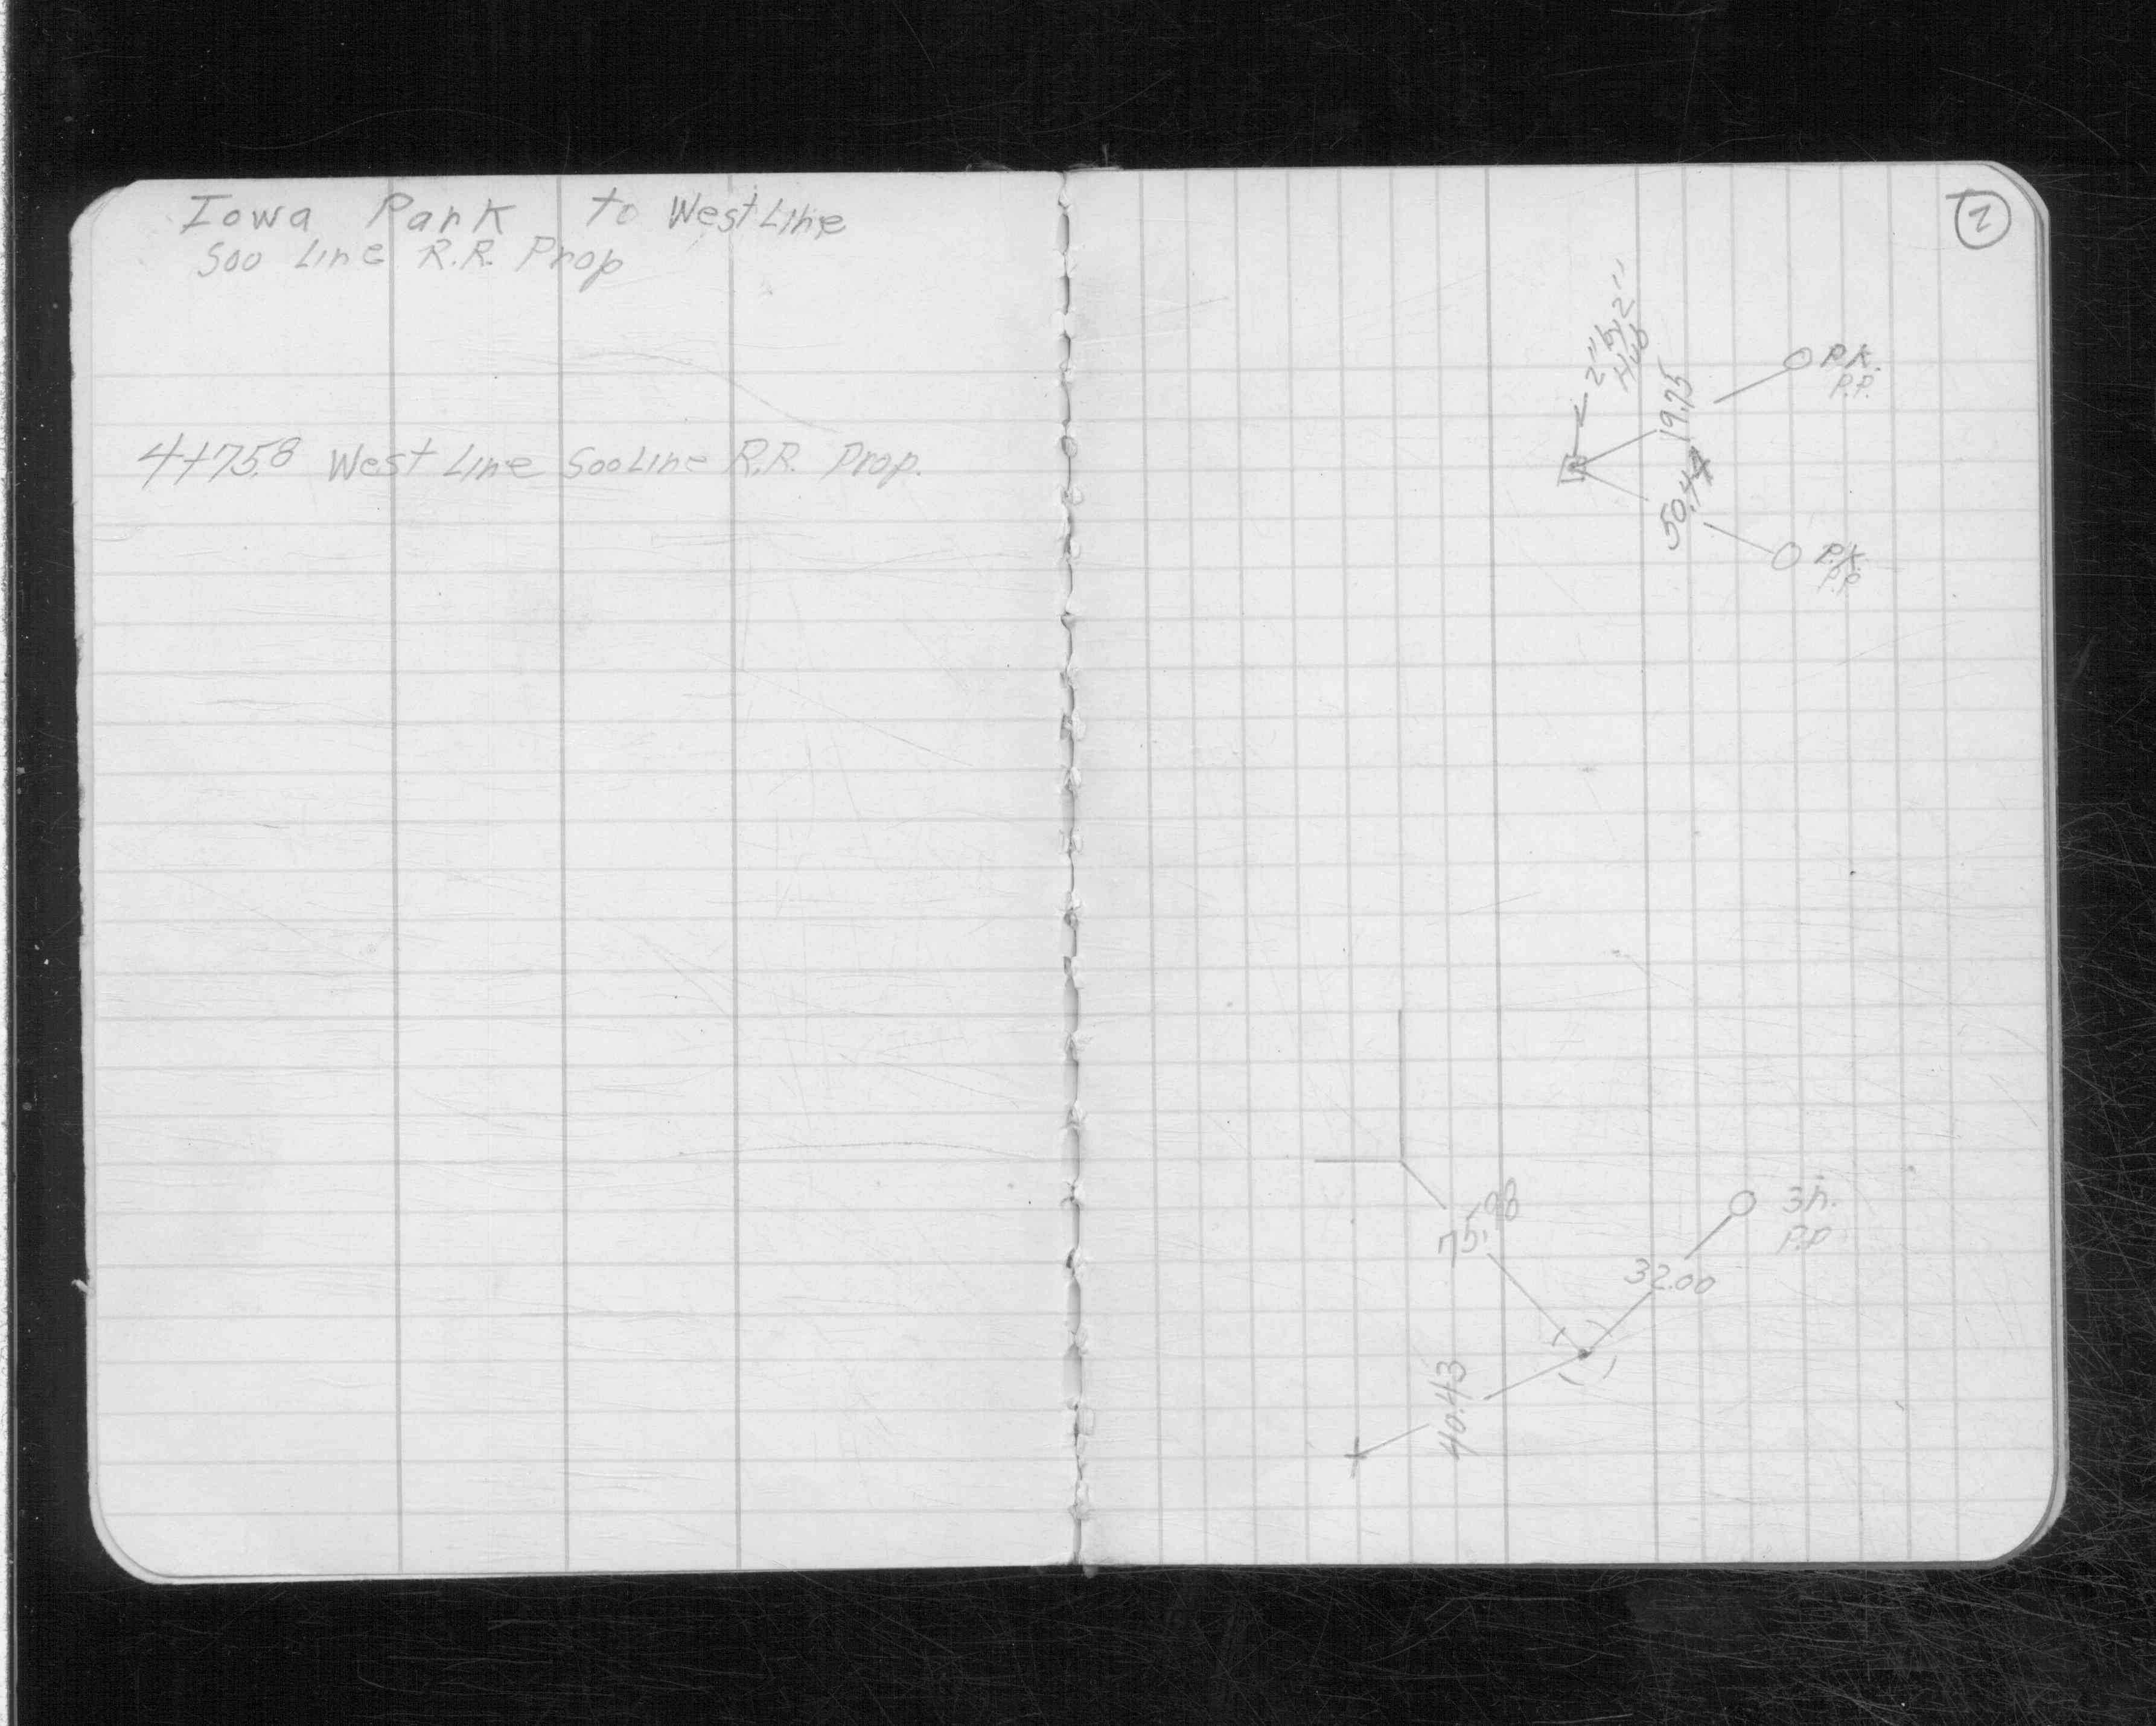 Iowa Park to West Line
Soo Line R.R. Prop
4+75.8 West Line Soo Line R.R. Prop.
2" by 2"
Hub
19.75
P.K.
P.P.
50.44
P.K.
P.P.
75.98
3n.
P.P.
32.00
40.43